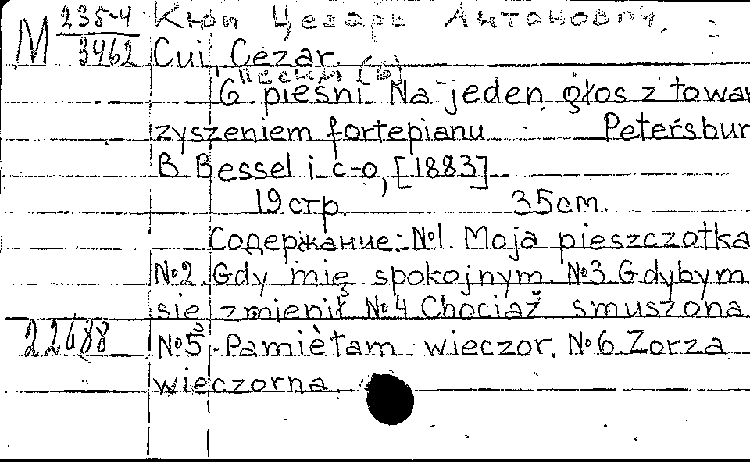 М 235-4/3462
Кюи Цезарь Антонович.
Cui, Cezar.
Песни (6)
6 pieśni. Na jeden głos z towar
zyszeniem fortepianu Petersbur
B. Bessel i c-o, [1883]
19 стр. 35 cm.
Содержание: №1. Moja pieszczotka
№2. Gdy mię spokojnym №3. Gdybym
się zmienił №4 Chociaż smuszona
22688
№5. Pamiètam wieczor. №6. Zorza
wieczorna